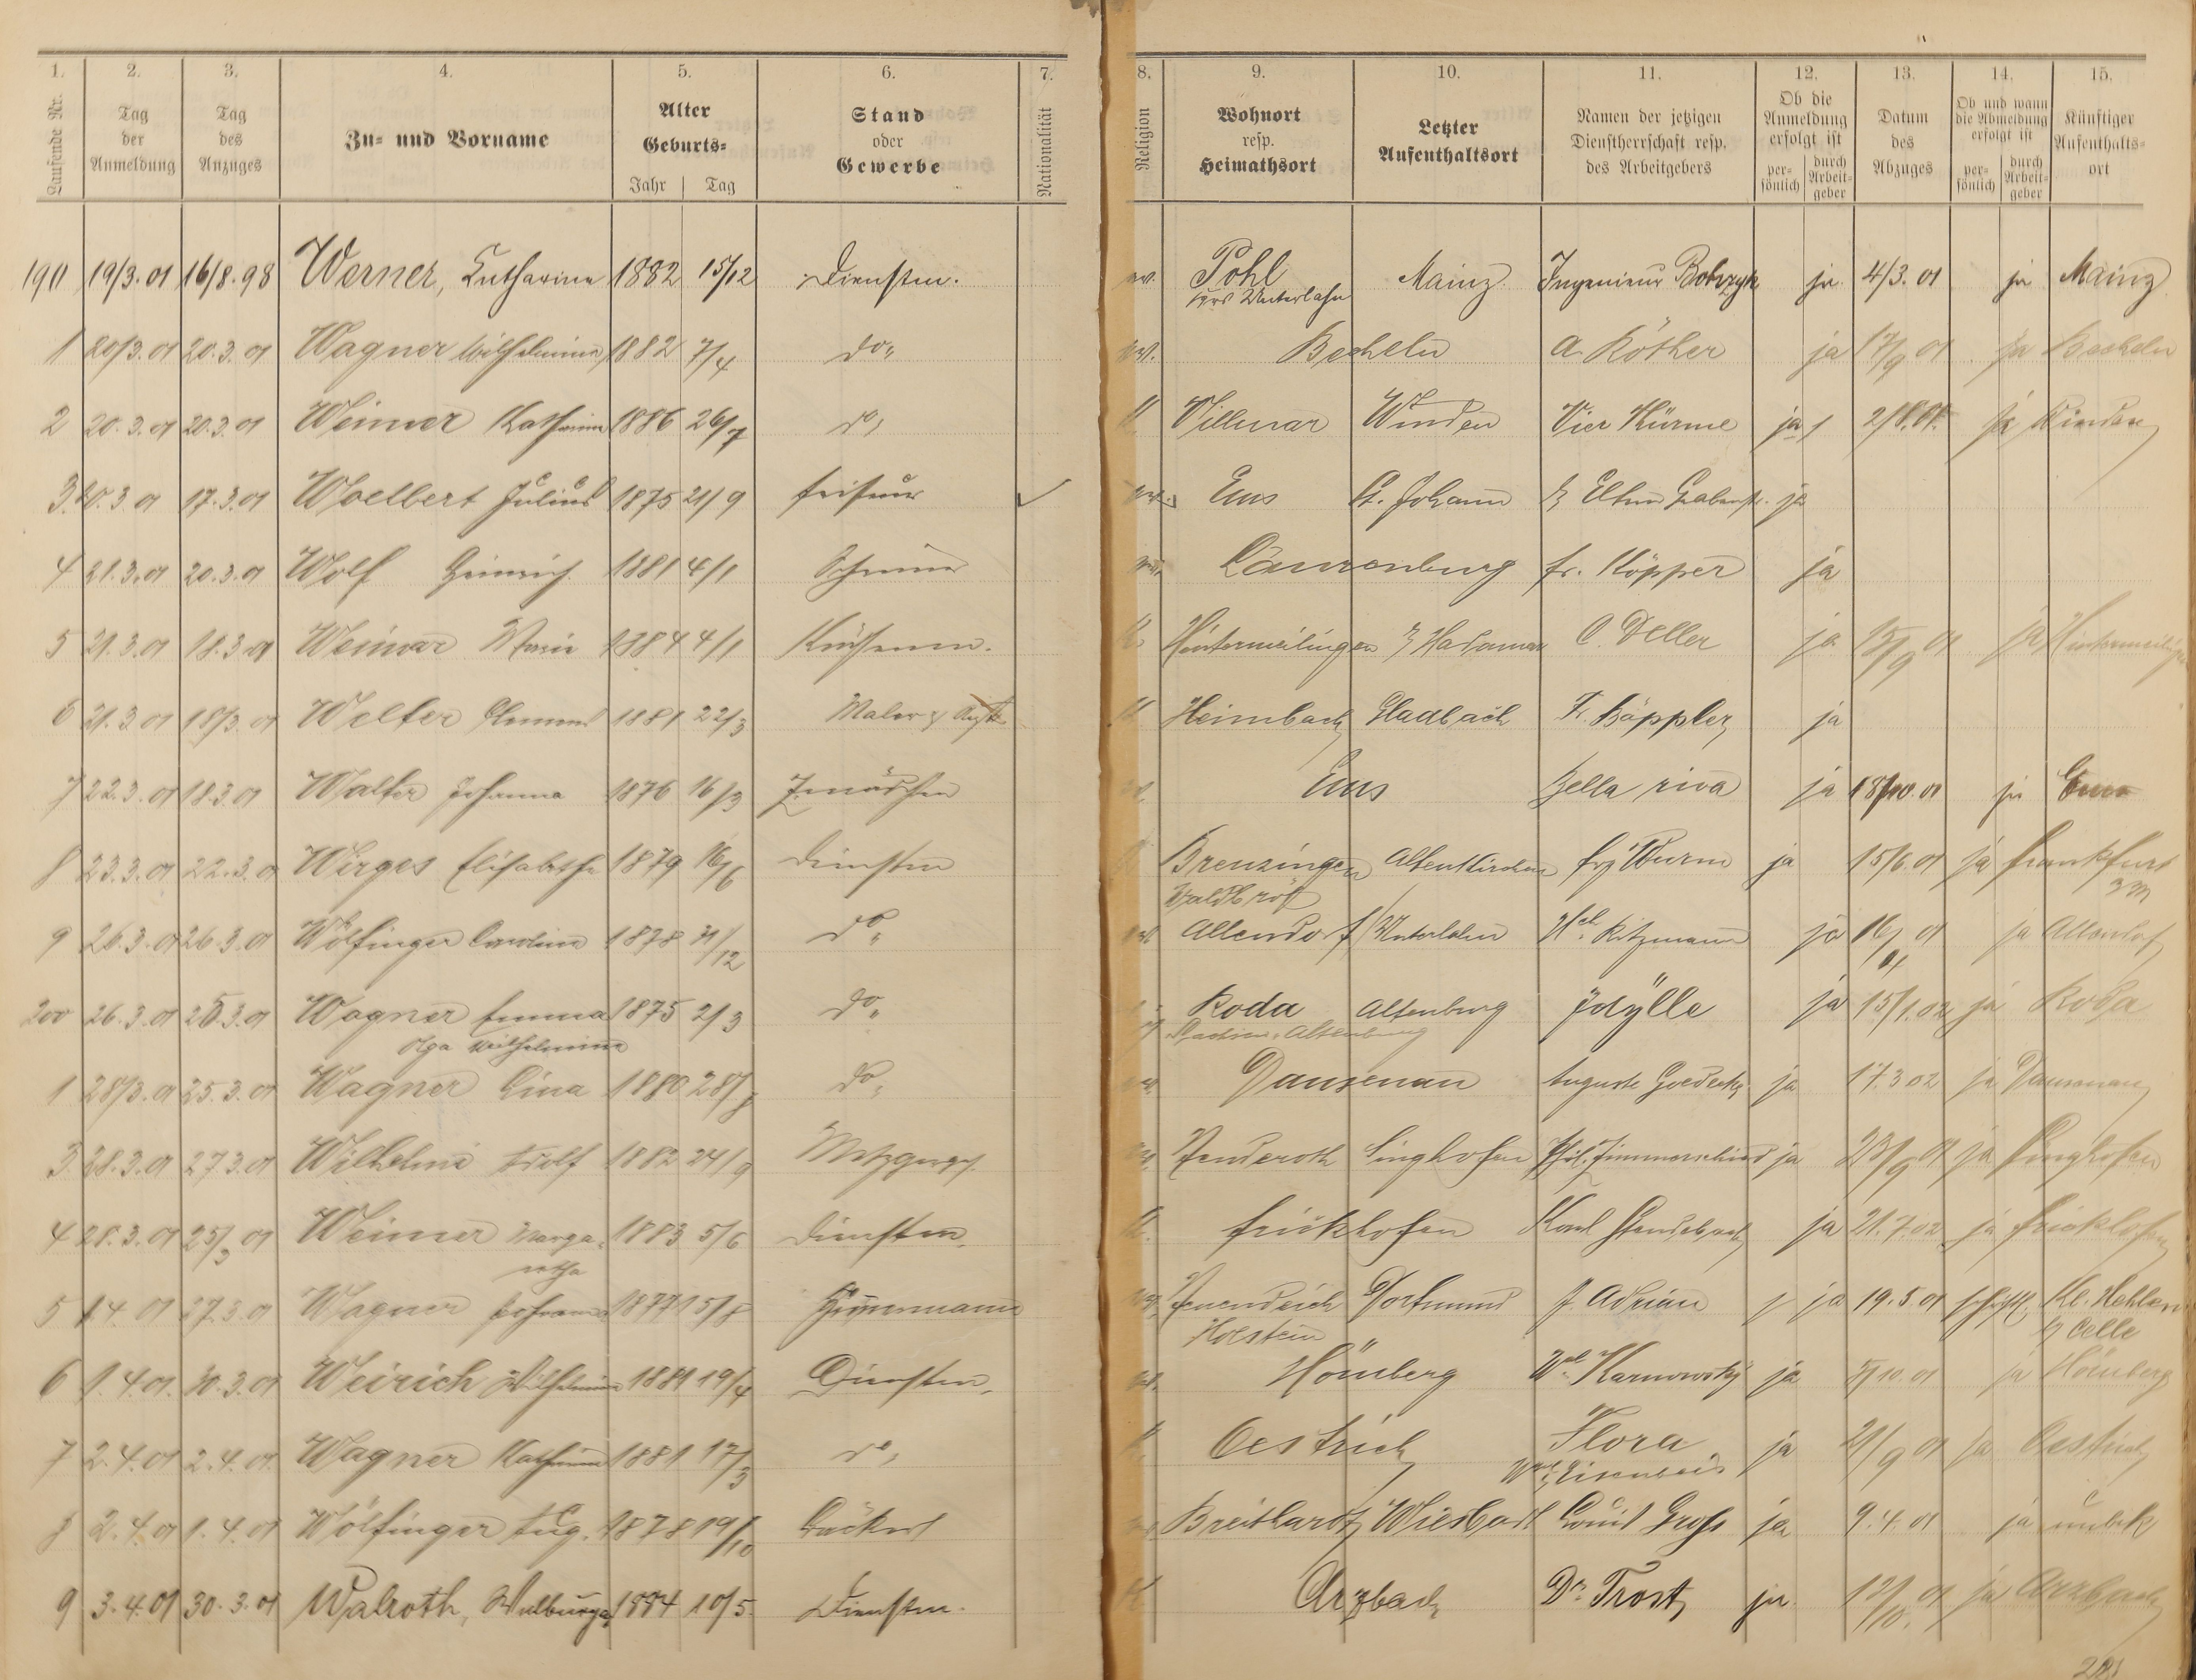 1. 2. 3. 4. 5. 6. 7. 8. 9. 10. 11. 12. 13. 14. 15.
Laufende Nr. Tag der Anmeldung Tag des Anzuges Zu- und Vorname Alter Geburts- Jahr Tag Stand oder Gewerbe Nationalität Religion Wohnort resp. Heimathsort Letzter Aufenthaltsort Namen der jetzigen Dienstherrschaft resp. des Arbeitgebers Ob die Anmeldung erfolgt ist persönlich durch Arbeitgeber Datum des Abzuges Ob und wann die Abmeldung erfolgt ist persönlich durch Arbeitgeber Künftiger Aufenthaltsort
190 19/3.01 16/8.98 Werner, Katharina 1882 15/12 Dienstm. ev. Pohl Mainz Ingenieur ja 4/3.01 ja Mainz
Unterlahn
1 20/3.01 20.3.01 Wagner Wilhelmine 1882 7/4 do. ev. Becheln A. Köther ja 17/9 01 ja Becheln
2 20.3.01 20.3.01 Weimer Katharina 1886 26/7 do. K. Villmar Winden Vier Türme ja 2/8.01 ja Winden
3 20.3.01 17.3.01 Woelbert Julius 1875 21/9 Friseur ev. Ems St. Johann ja
4 21.3.01 20.3.01 Wolf Heinrich 1881 4/1 Schreiner Laurenburg Fr. Köpper ja
5 21.3.01 18.3.01 Weimar Maria 1884 4/1 K. Hintermeilingen Hadamar C. Deller ja 15/9 01 ja Hintermeilingen
6 21.3.01 18/3 01 Welter 1881 22/3 Maler K. Heimbach Gladbach Fr. Käppler ja
7 22.3.01 18.3.01 Walter Johanna 1876 16/3 Z.mädchen Ems Bella riva ja 18/10.01 ja Ems
8 23.3.01 22.3.01 Wirges Elisabethe 1879 16/6 Dienstm Brenzingen Altenkirchen ja 15/6.01 ja Frankfurt
Waldbröl a/M
9 26.3.01 26.3.01 Wölfinger Carolina 1878 31/12 do. Allendorf Unterlahn Ritzmann ja 16/ 01 ja Allendorf
200 26.3.01 25.3.01 Wagner Emma 1875 2/3 do. Roda Altenburg Idylle ja 15/1.02 ja Roda
Olga Wilhelmine Sachsen-Altenburg
1 28/3.01 25.3.01 Wagner Lina 1880 28/8 do. Dausenau Auguste Goedecke ja 17.3 02 ja Dausenau
3 28.3.01 27.3.01 Wilhelmi Adolf 1882 24/9 Metzgergeh. Singhofen Phil. Zimmerschied ja 23/9 01 ja Singhofen
4 28.3.01 25/3 01 Weimer Marga- 1883 5/6 Dienstm. K. Frickhofen Karl ja 21.7.02 ja Frickhofen
retha
5 1.4 01 27.3.01 Wagner Johannes 1877 15/8 Zimmermann Dortmund J. Adrian ja 19.5 01 schriftl. Kl. Hehlen
Holstein b/ Celle
6 1.4.01. 30.3.01 Weirich Wilhelmine 1881 19/4 Dienstm. Hömberg Wwe Karnowsky ja 5/10.01 ja Hömberg
7 2.4.01 2.4.01. Wagner Katharina 1881 17/3 do. K. Oestrich Flora ja 21/9 01 ja Oestrich
Wwe Eisenbeis
8 2.4.01 1.4.01 Wölfinger Aug. 1878 19/10 Bäcker Breithardt Wiesbad Emil Groß ja 9.4.01 ja unbek
9 3.4.01 30.3.01 Walroth, Walburga 1884 10/5. Dienstm. K. Arzbach Dr Trost ja 12/10. 01 ja Arzbach